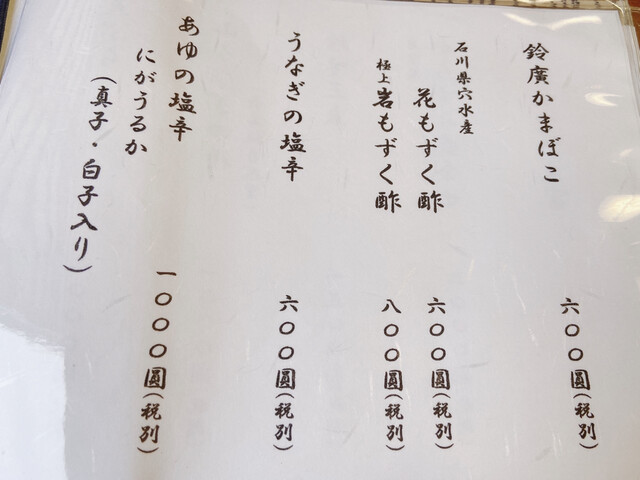 鈴廣かまぼこ
六〇〇圓(税別)
石川県穴水産
花もずく酢
六〇〇圓(税別)
極上岩もずく酢
八〇〇圓(税別)
うなぎの塩辛
六〇〇圓(税別)
あゆの塩辛
にがうるか
一〇〇〇圓(税別)
(真子・白子入り)